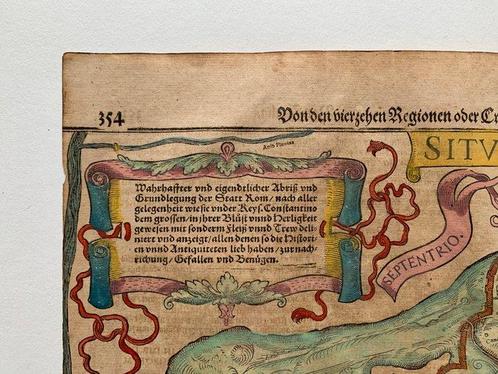 354
Von den vierzehen Regionen oder Cr
SITV
Anio Fluuius
Wahrhaffter vnd eigendtlicher Abriß vnd
Grundlegung der Statt Rom/ nach aller
gelegenheit wie sie vnder Keys. Constantino
dem grossen/ in jhrer Blüst vnnd Herligkeit
gewesen mit sonderm fleiß vnnd Trew deli-
niert vnd anzeigt/ allen denen so die Histori-
en vnnd Antiquiteten lieb haben/ zur nach-
richung/ Gefallen vnd Benügen.
SEPTENTRIO.